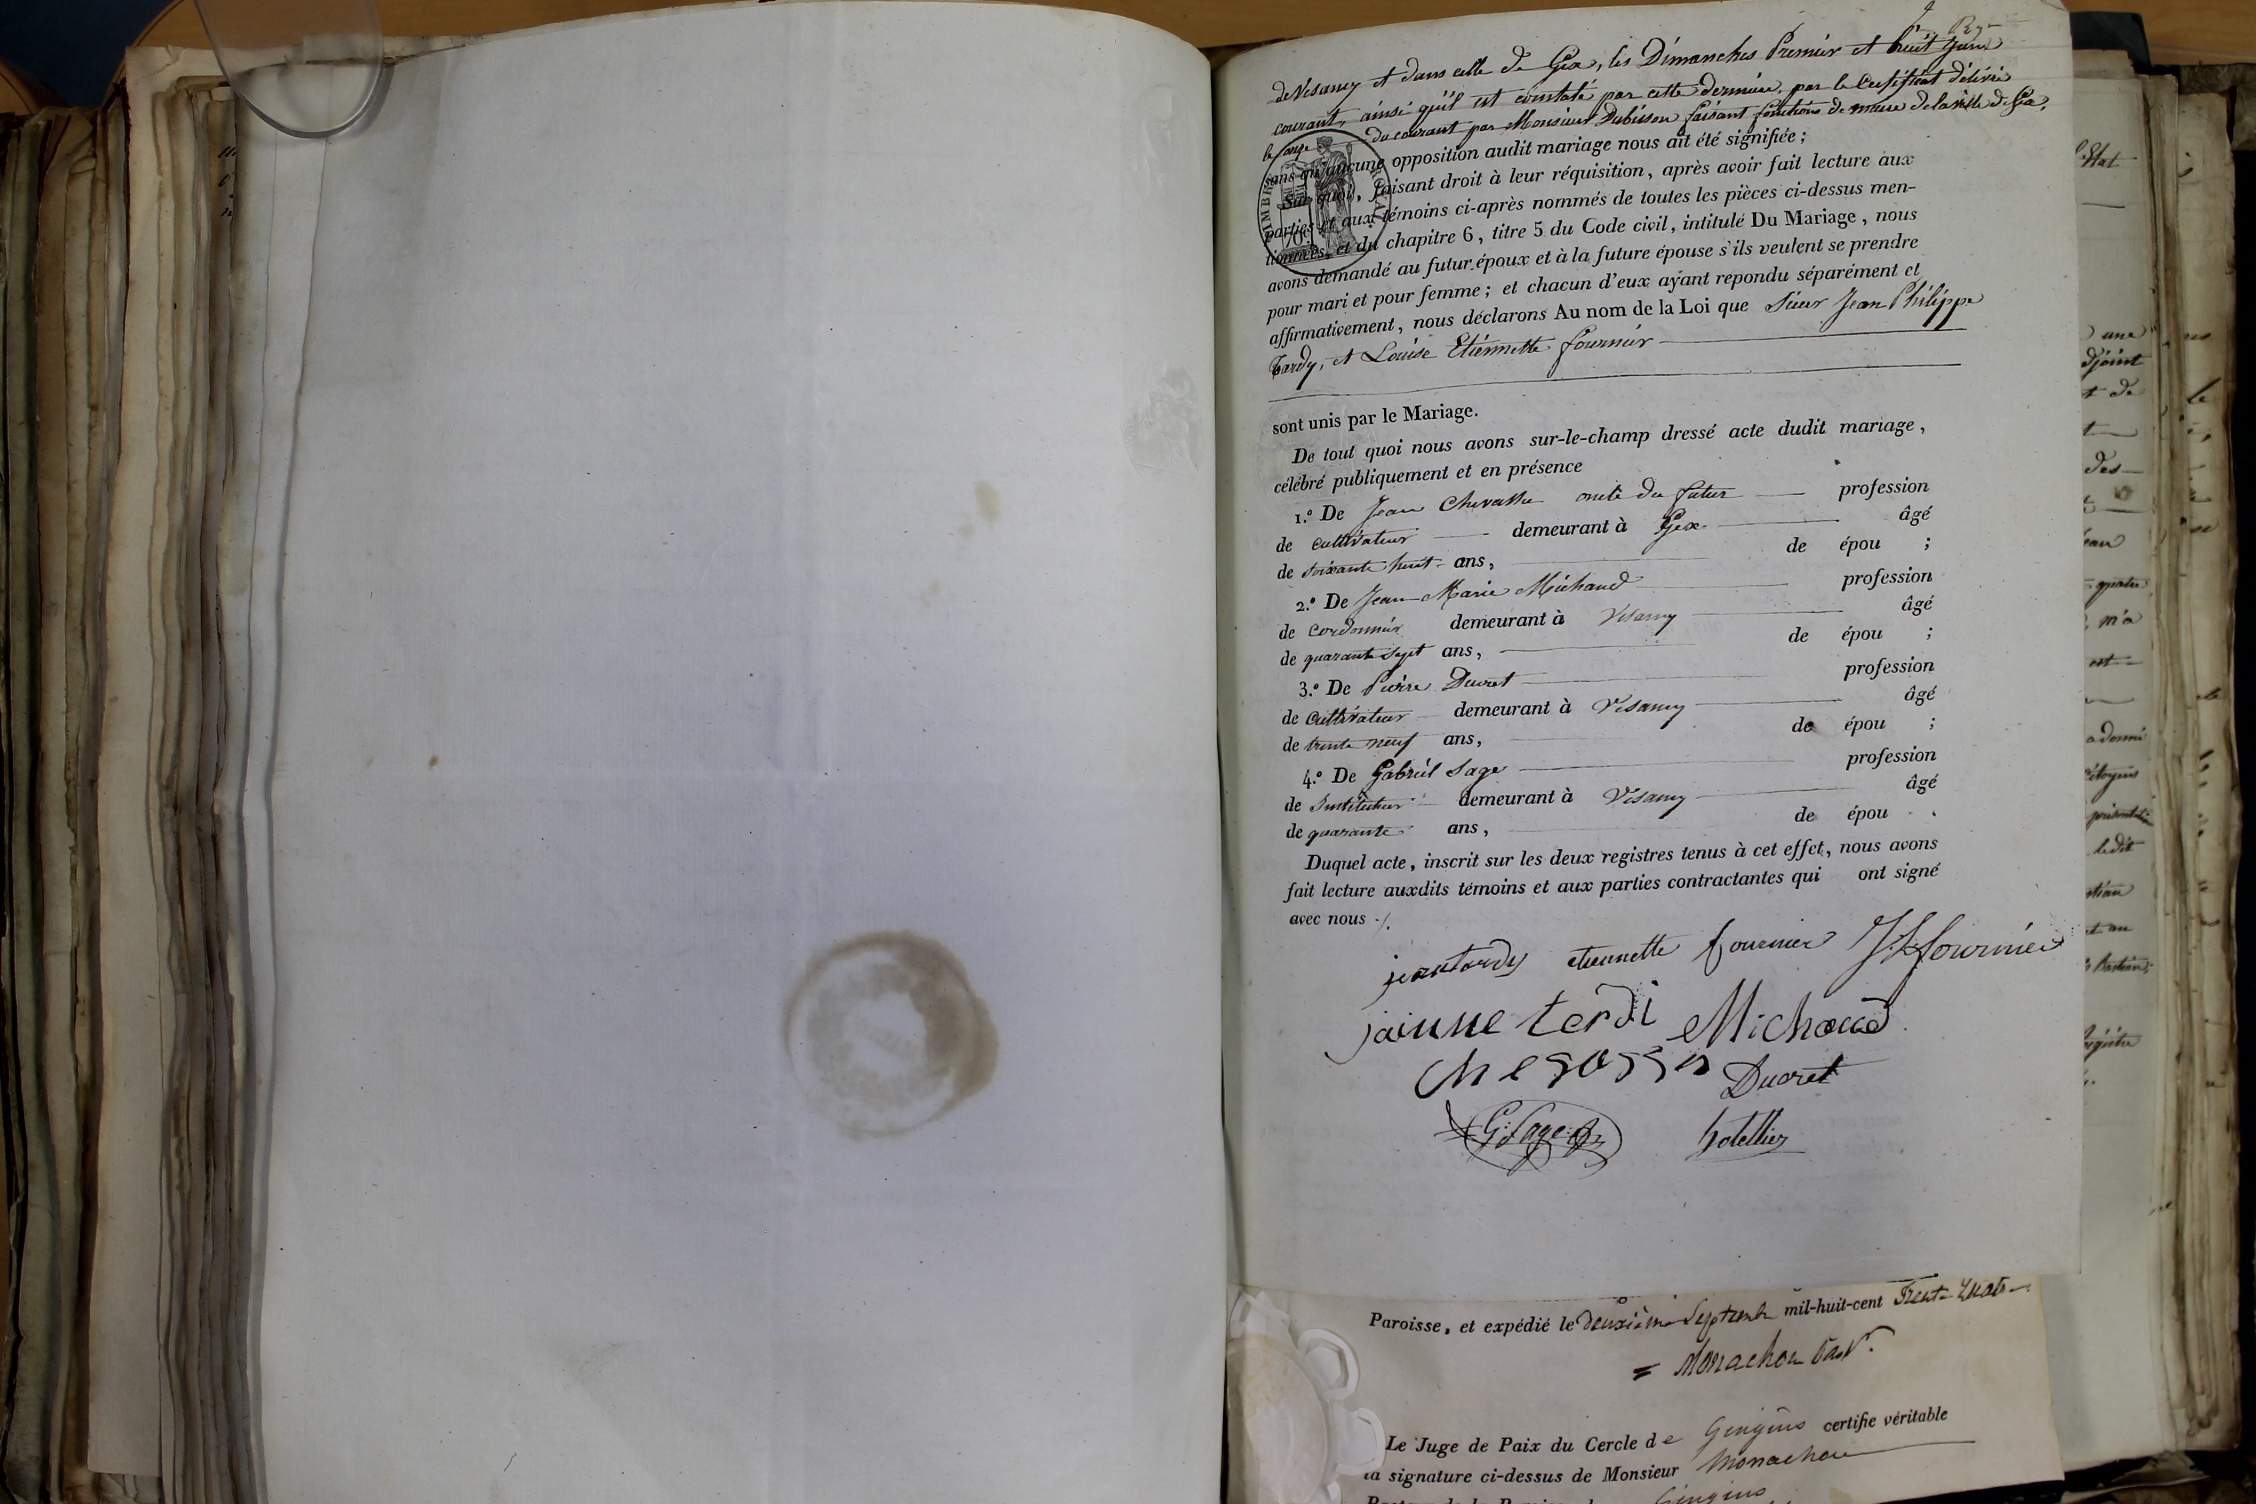 de Vesancy et dans celle de Gex, les Dimanches Premier et huit Juin
courant, ainsi qu'il est constaté par cette dernière par le Certificat délivré
le onze du courant par Monsieur Dubisson faisant fonctions de maire de la ville de Gex,
sans qu'aucune opposition audit mariage nous ait été signifiée ;
Sur quoi, faisant droit à leur réquisition, après avoir fait lecture aux
parties et aux témoins ci-après nommés de toutes les pièces ci-dessus men-
tionnées, et du chapitre 6, titre 5 du Code civil, intitulé Du Mariage, nous
avons demandé au futur époux et à la future épouse s'ils veulent se prendre
pour mari et pour femme ; et chacun d'eux aÿant repondu séparément et
affirmativement, nous déclarons Au nom de la Loi que Sieur Jean Philippe
Tardy, et Louise Etiennette fournier
sont unis par le Mariage.
De tout quoi nous avons sur-le-champ dressé acte dudit mariage,
célébré publiquement et en présence
1.º De Jean Chevassu oncle du futur profession
de cultivateur demeurant à Gex âgé
de soixante huit ans, de épou ;
2.º De Jean Marie Michaud profession
de cordonnier demeurant à Vesancy âgé
de quarante sept ans, de épou ;
3.º De Pierre Ducret profession
de cultivateur demeurant à Vesancy âgé
de trente neuf ans, de épou ;
4.º De Gabriel Sage profession
de Instituteur demeurant à Vesancy âgé
de quarante ans, de épou .
Duquel acte, inscrit sur les deux registres tenus à cet effet, nous avons
fait lecture auxdits témoins et aux parties contractantes qui ont signé
avec nous ./.
jean tardy etiennette fournier J L fournier
jainne terdi Michaud
Chevassu Ducret
G: Sage hotellier
Paroisse, et expédié le deuxième Septembre mil-huit-cent Trente Quatre
= Monachon Past.
Le Juge de Paix du Cercle de Gingins certifie véritable
la signature ci-dessus de Monsieur Monachon
Gingins